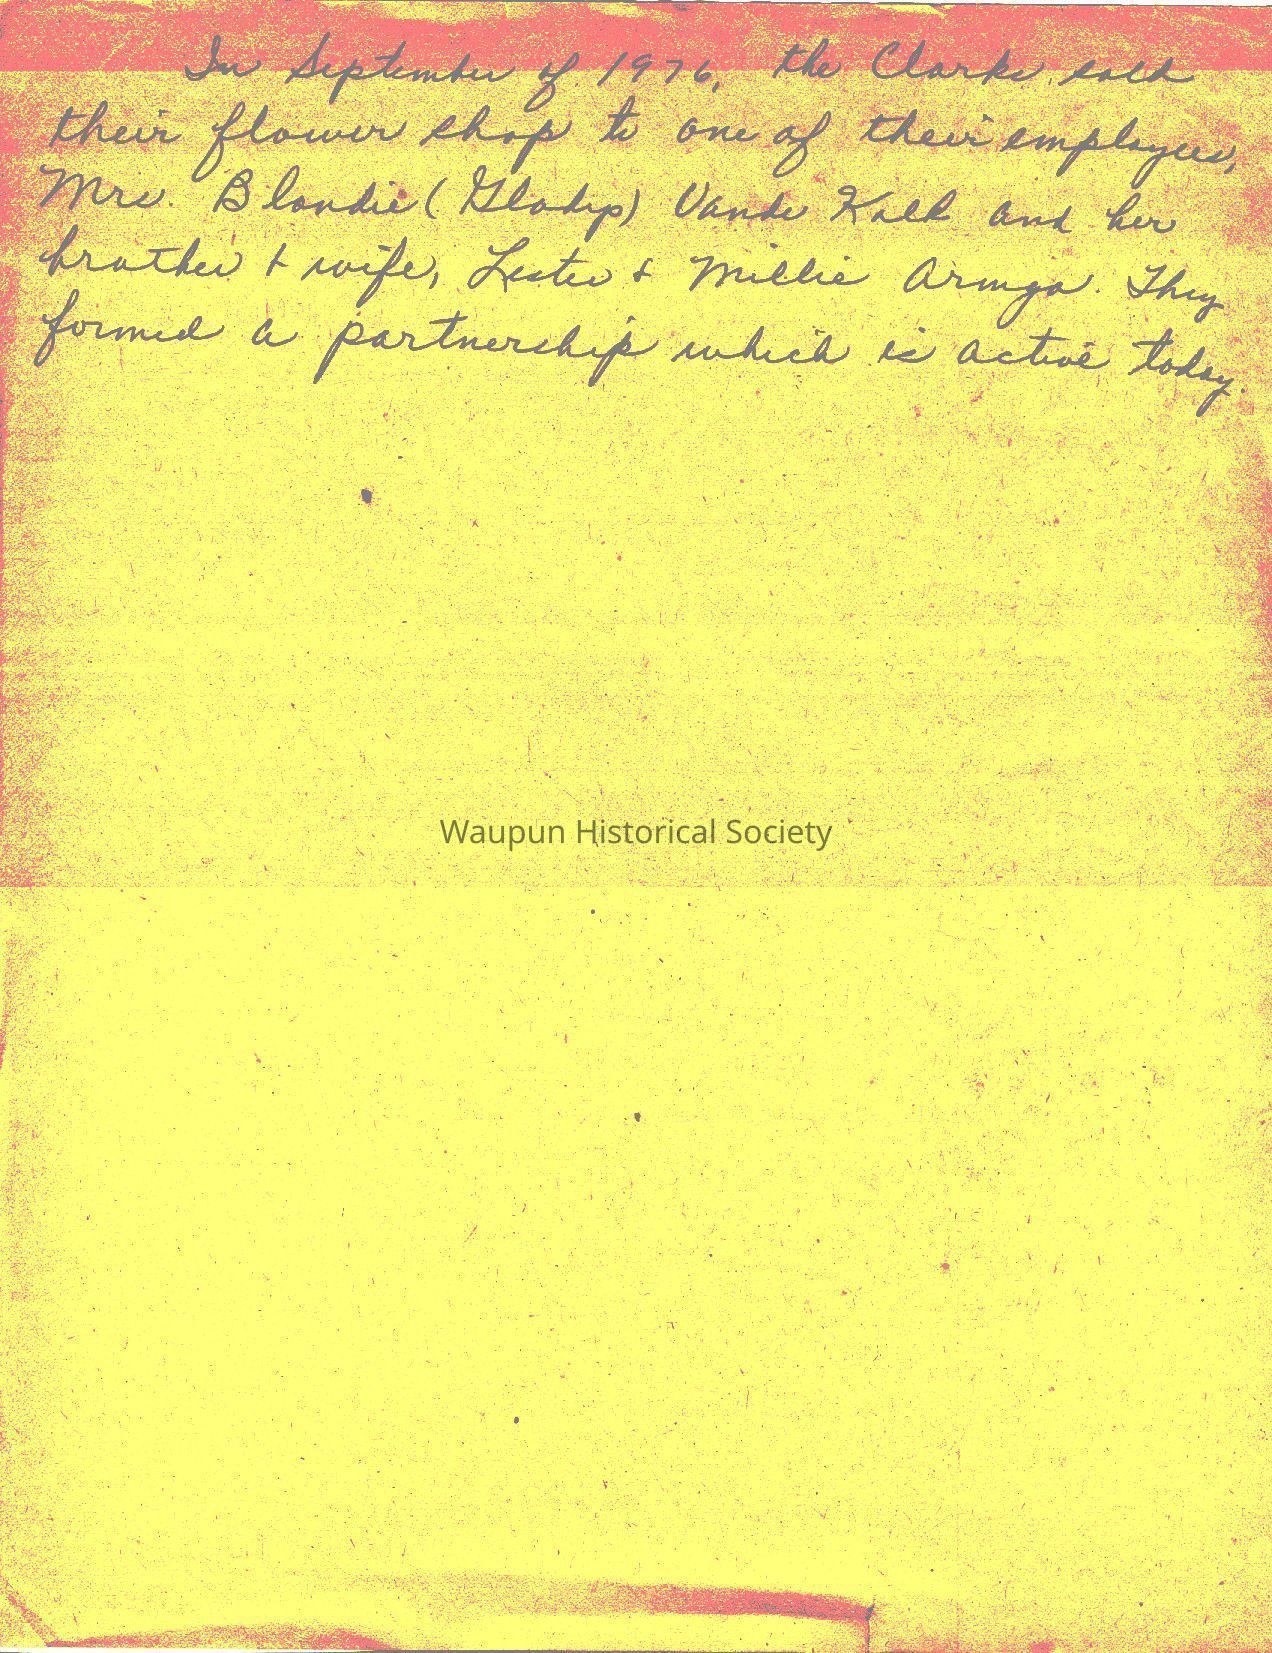 In September of 1976, the Clarks sold
their flower shop to one of their employees,
Mrs. Blondie (Gladys) Vande Kolk and her
brother & wife, Lester & Millie Armga. They
formed a partnership which is active today.
Waupun Historical Society